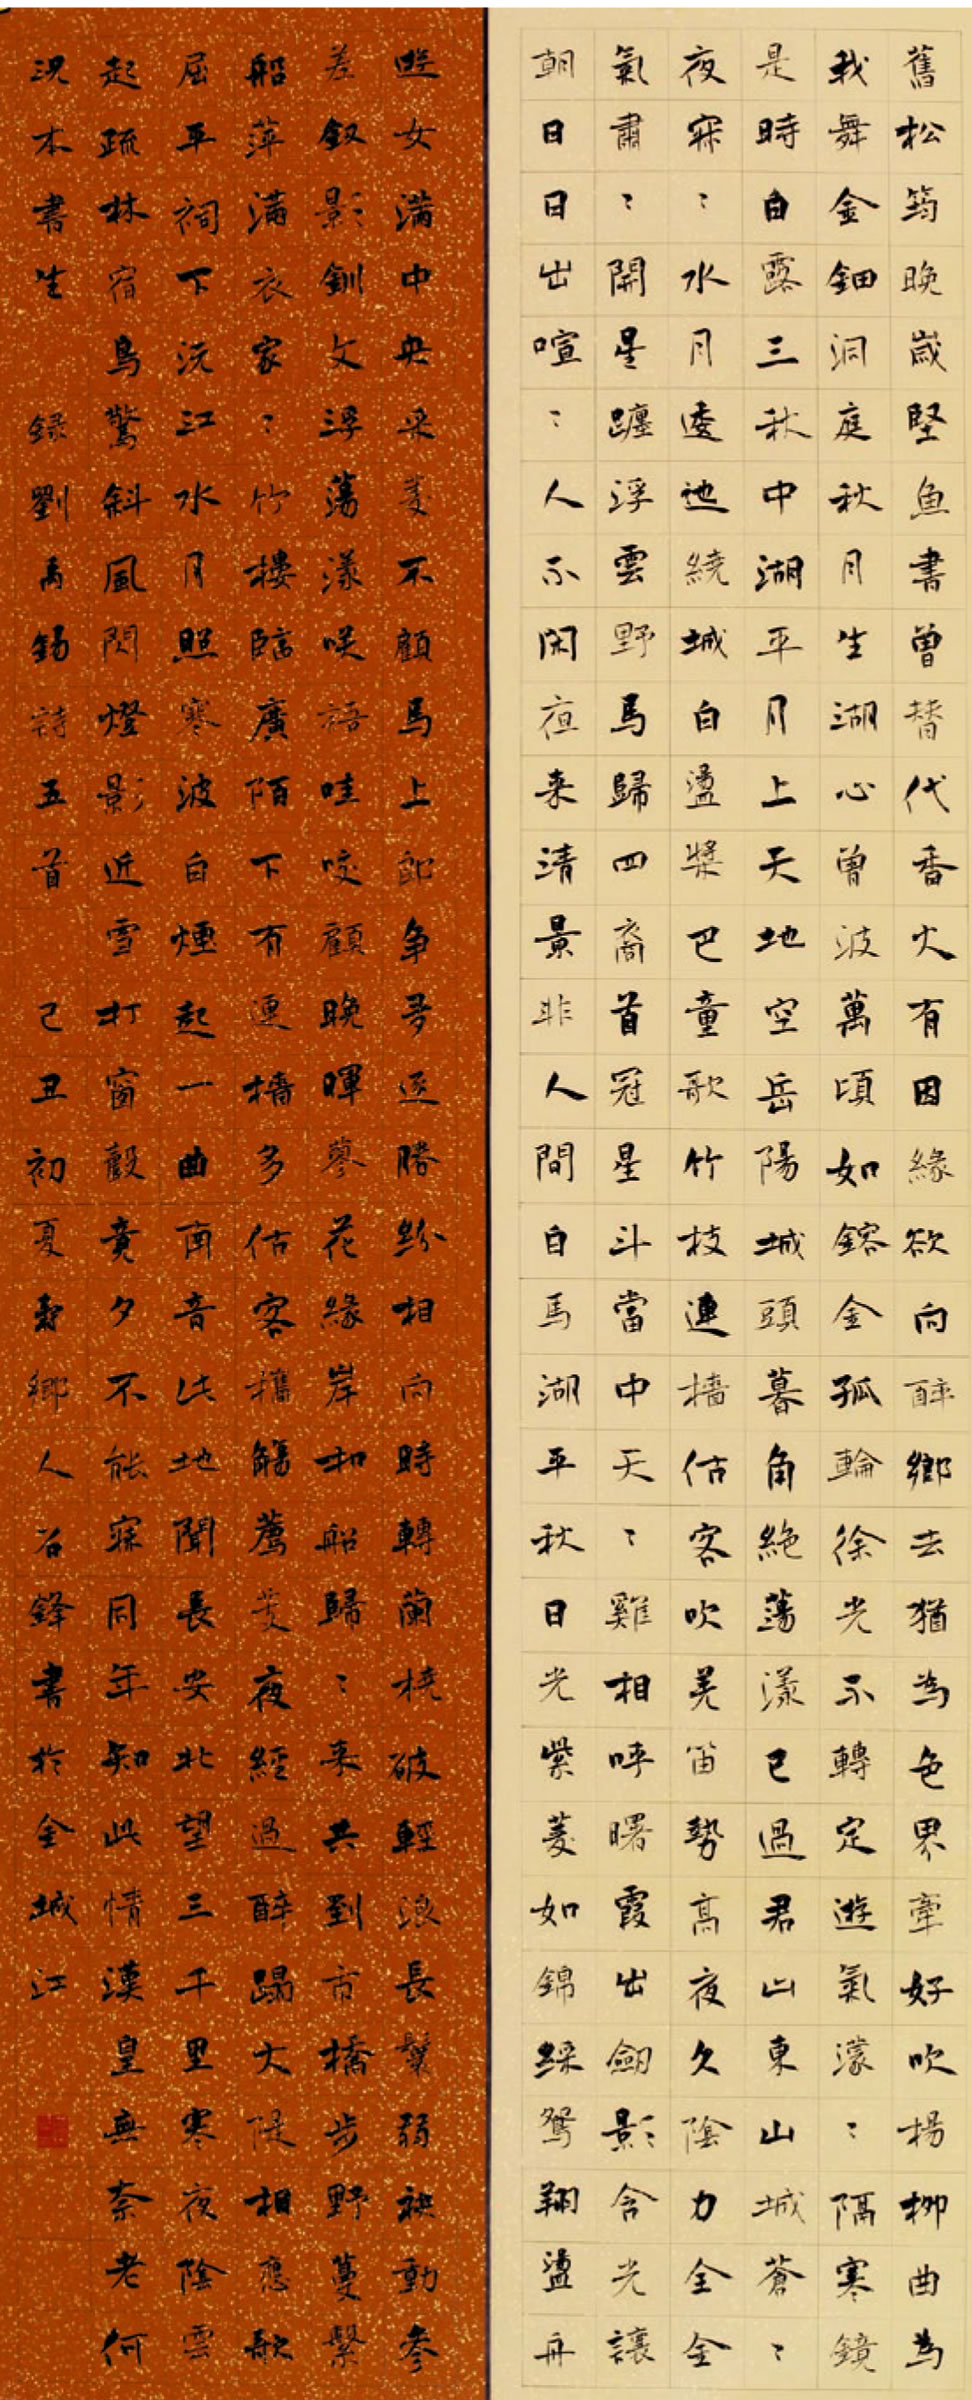 舊松筠晚歲堅魚書曾替代香火有因緣欲向醉鄉去猶為色界牽好吹楊柳曲為
我舞金鈿洞庭秋月生湖心曾波萬頃如鎔金孤輪徐光不轉定遊氣濛〻隔寒鏡
是時白露三秋中湖平月上天地空岳陽城頭暮角絕蕩漾已過君山東山城蒼〻
夜寂〻水月逶迆繞城白盪槳巴童歌竹枝連檣估客吹羌笛勢高夜久陰力全金
氣肅〻開星躔浮雲野馬歸四裔首冠星斗當中天天〻雞相呼曙霞出劍影含光讓
朝日日出喧〻人不閑夜來清景非人間白馬湖平秋日光紫菱如錦綵鴛翔盪舟
遊女滿中央采菱不顧馬上郎爭多逐勝紛相向時轉蘭橈破輕浪長鬟弱袂動參
差釵影釧文浮蕩漾咲語哇咬顧晚暉蓼花緣岸扣船歸〻來共到市橋步野蔓繫
船萍滿衣家〻竹樓臨廣陌下有連檣多估客攜觴薦芰夜經過醉蹋大隄相應歌
屈平祠下沅江水月照寒波白煙起一曲南音此地聞長安北望三千里寒夜陰雲
起疏林宿鳥驚斜風閃燈影近雪打窗聲竟夕不能寐同年知此情漢皇無奈老何
況本書生 錄劉禹錫詩五首 己丑初夏壽鄉人召鋒書於金城江